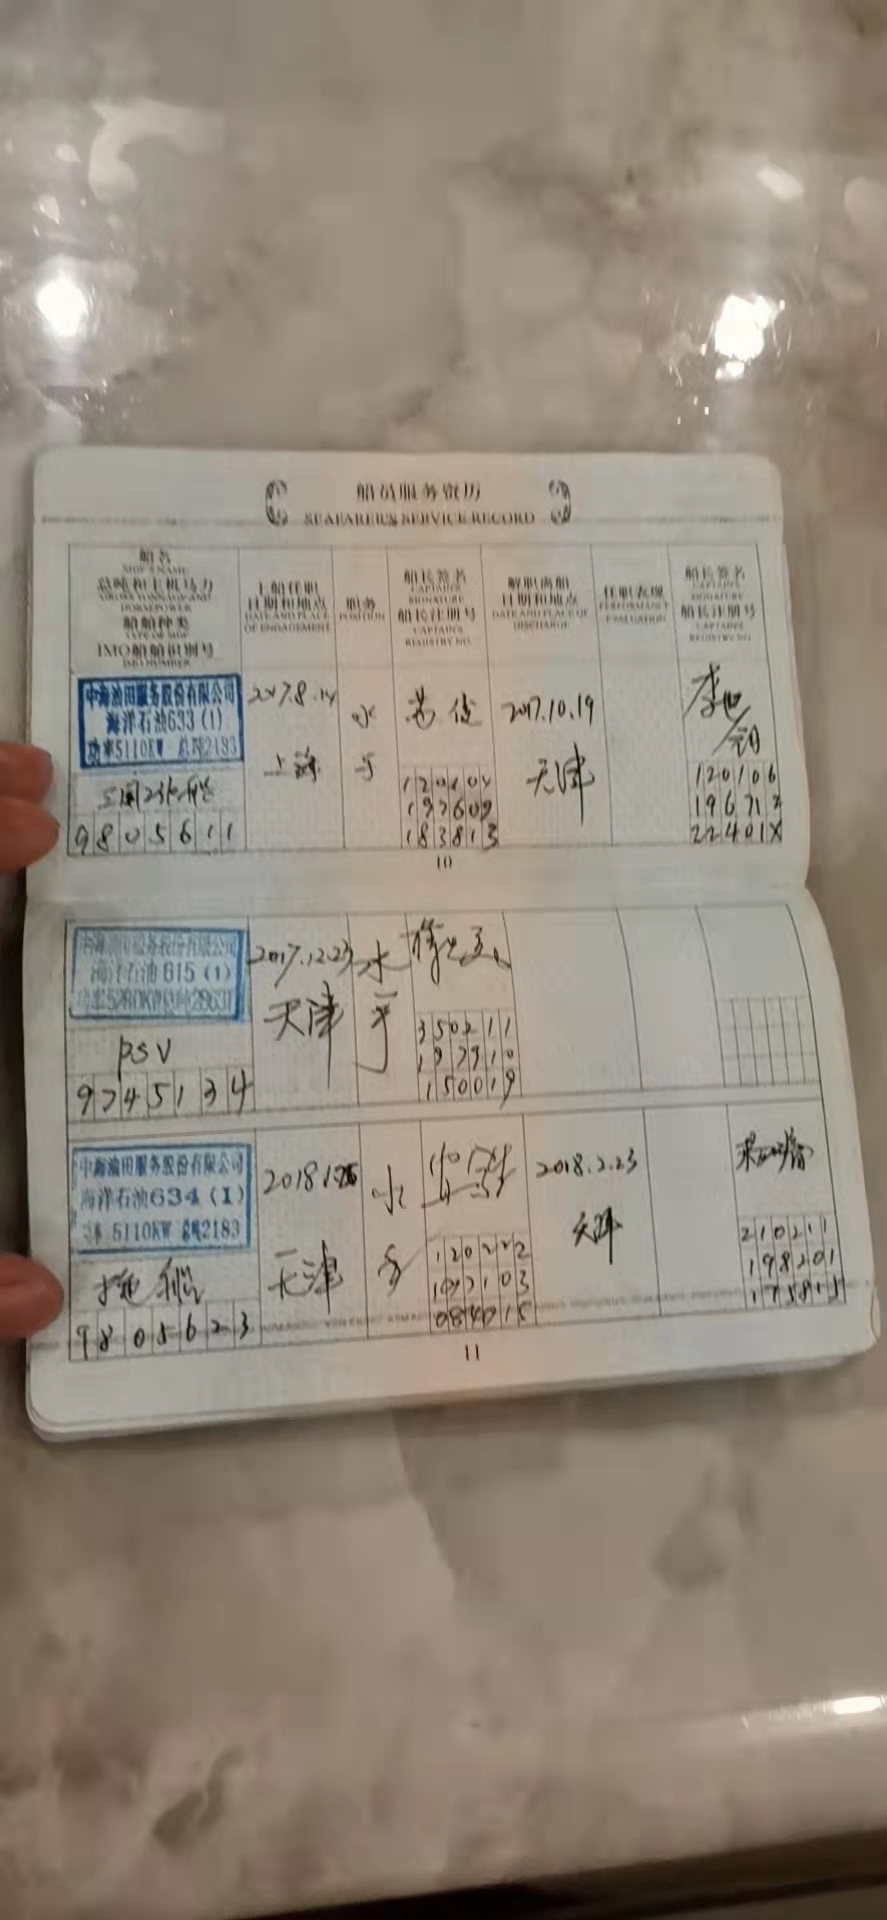 船员服务资历
SEAFARER'S SERVICE RECORD
船名
SHIP'S NAME
总吨和主机马力
GROSS TONNAGE AND
HORSEPOWER
船舶种类
TYPE OF SHIP
IMO船舶识别号
IMO NUMBER
上船任职
日期和地点
DATE AND PLACE
OF ENGAGEMENT
职务
POSITION
船长签名
CAPTAIN'S
SIGNATURE
船长注册号
CAPTAIN'S
REGISTRY NO.
解职离船
日期和地点
DATE AND PLACE OF
DISCHARGE
任职表现
PERFORMANCE
EVALUATION
船长签名
CAPTAIN'S
SIGNATURE
船长注册号
CAPTAIN'S
REGISTRY NO.
中海油田服务股份有限公司
海洋石油633(1)
功率5110KW 总吨2183
9805611
2017.8.14
上海
水
手
2017.10.19
天津
120106
22401X
10
中海油田服务股份有限公司
海洋石油615(1)
PSV
9745134
2017.12.23
天津
水
手
350211
150019
中海油田服务股份有限公司
海洋石油634(1)
功率5110KW 总吨2183
拖轮
9805623
天津
水
手
120222
084015
2018.2.23
天津
210211
198201
11